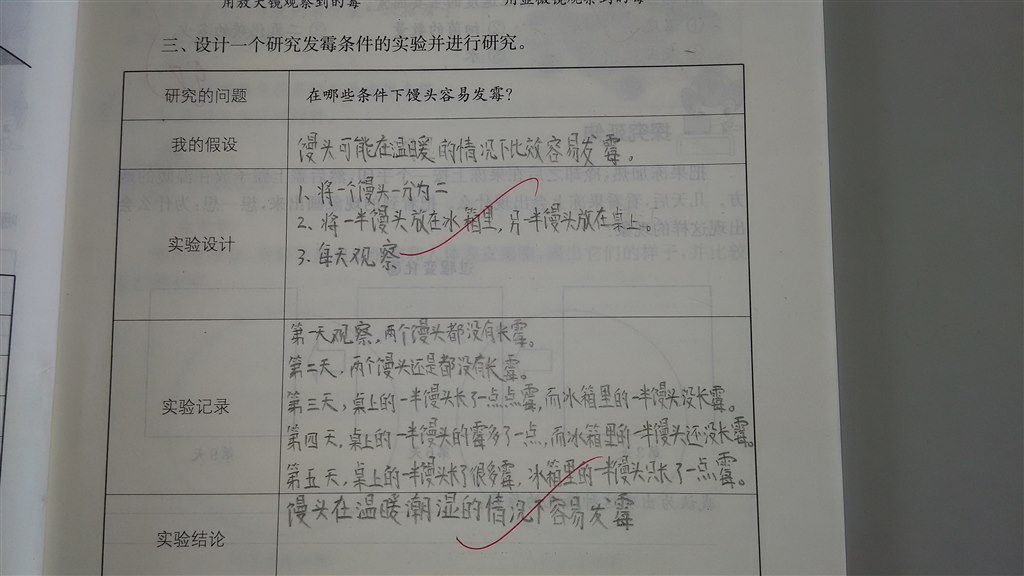 用放大镜观察到的霉
用显微镜观察到的霉
三、设计一个研究发霉条件的实验并进行研究。
研究的问题
在哪些条件下馒头容易发霉?
我的假设
馒头可能在温暖的情况下比较容易发霉。
实验设计
1、将一个馒头一分为二
2、将一半馒头放在冰箱里,另一半馒头放在桌上。
3、每天观察
实验记录
第一天观察,两个馒头都没有长霉。
第二天,两个馒头还是都没有长霉。
第三天,桌上的一半馒头长了一点点霉,而冰箱里的一半馒头没长霉。
第四天,桌上的一半馒头的霉多了一点,而冰箱里的一半馒头还没长霉。
第五天,桌上的一半馒头长了很多霉,冰箱里的一半馒头只长了一点霉。
实验结论
馒头在温暖潮湿的情况下容易发霉